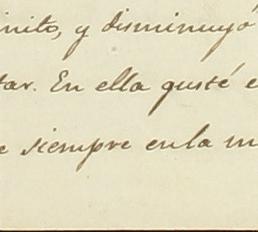 inito, y disminuyó
tar. En ella gusté e
e siempre en la m